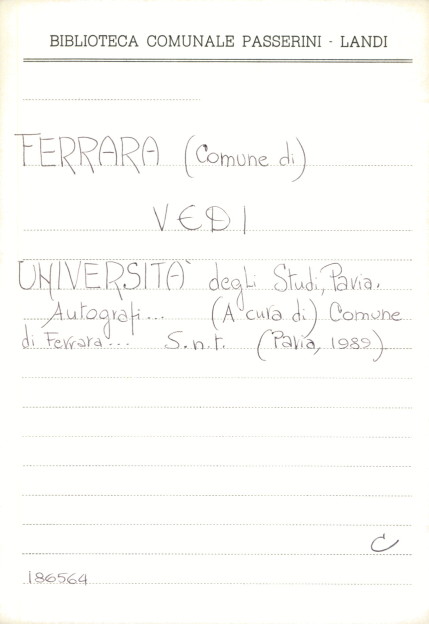 BIBLIOTECA COMUNALE PASSERINI - LANDI
FERRARA (Comune di)
VEDI
UNIVERSITA' degli Studi, Pavia.
Autografi... (A cura di) Comune
di Ferrara... S.n.t. (Pavia, 1989)
C
186564